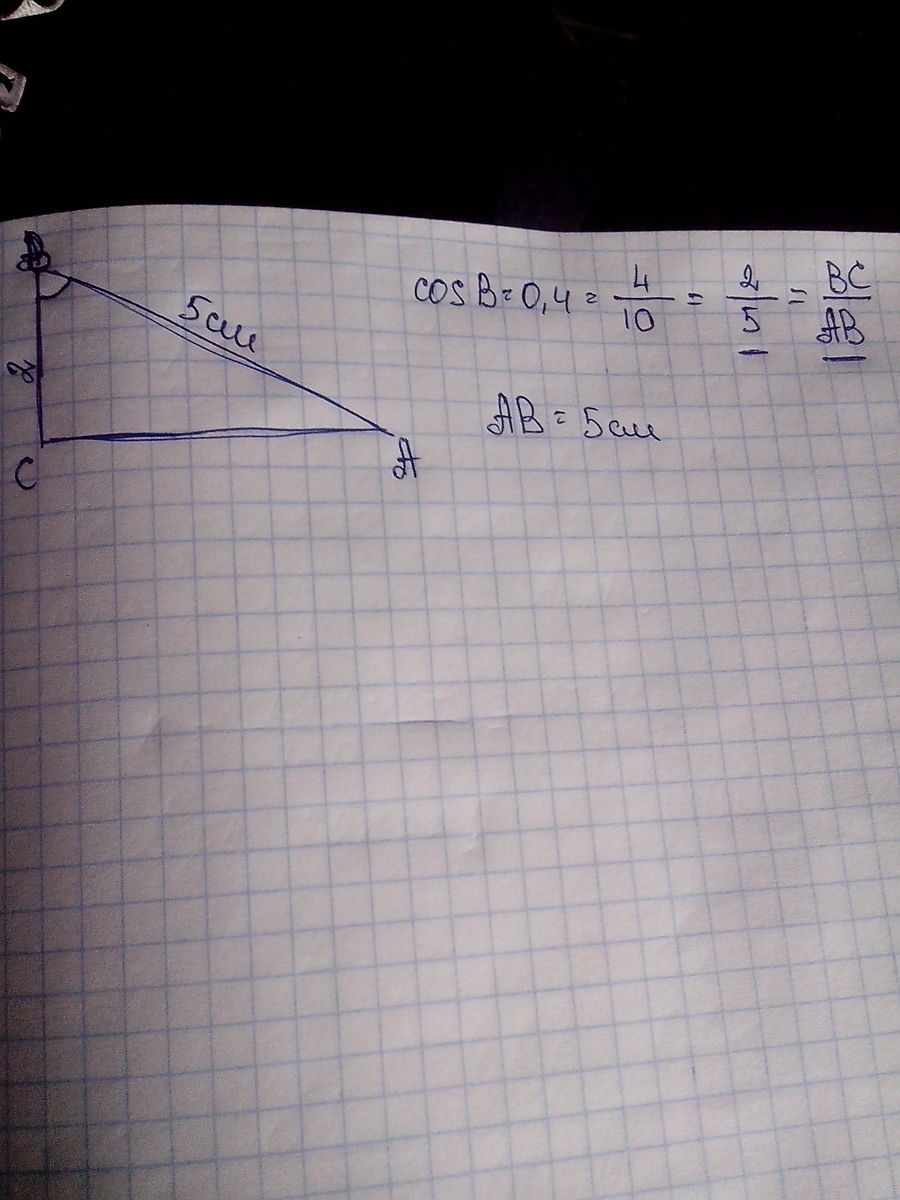 B
5см
2
C
A
cos B = 0,4 = 4/10 = 2/5 = BC/AB
AB = 5см